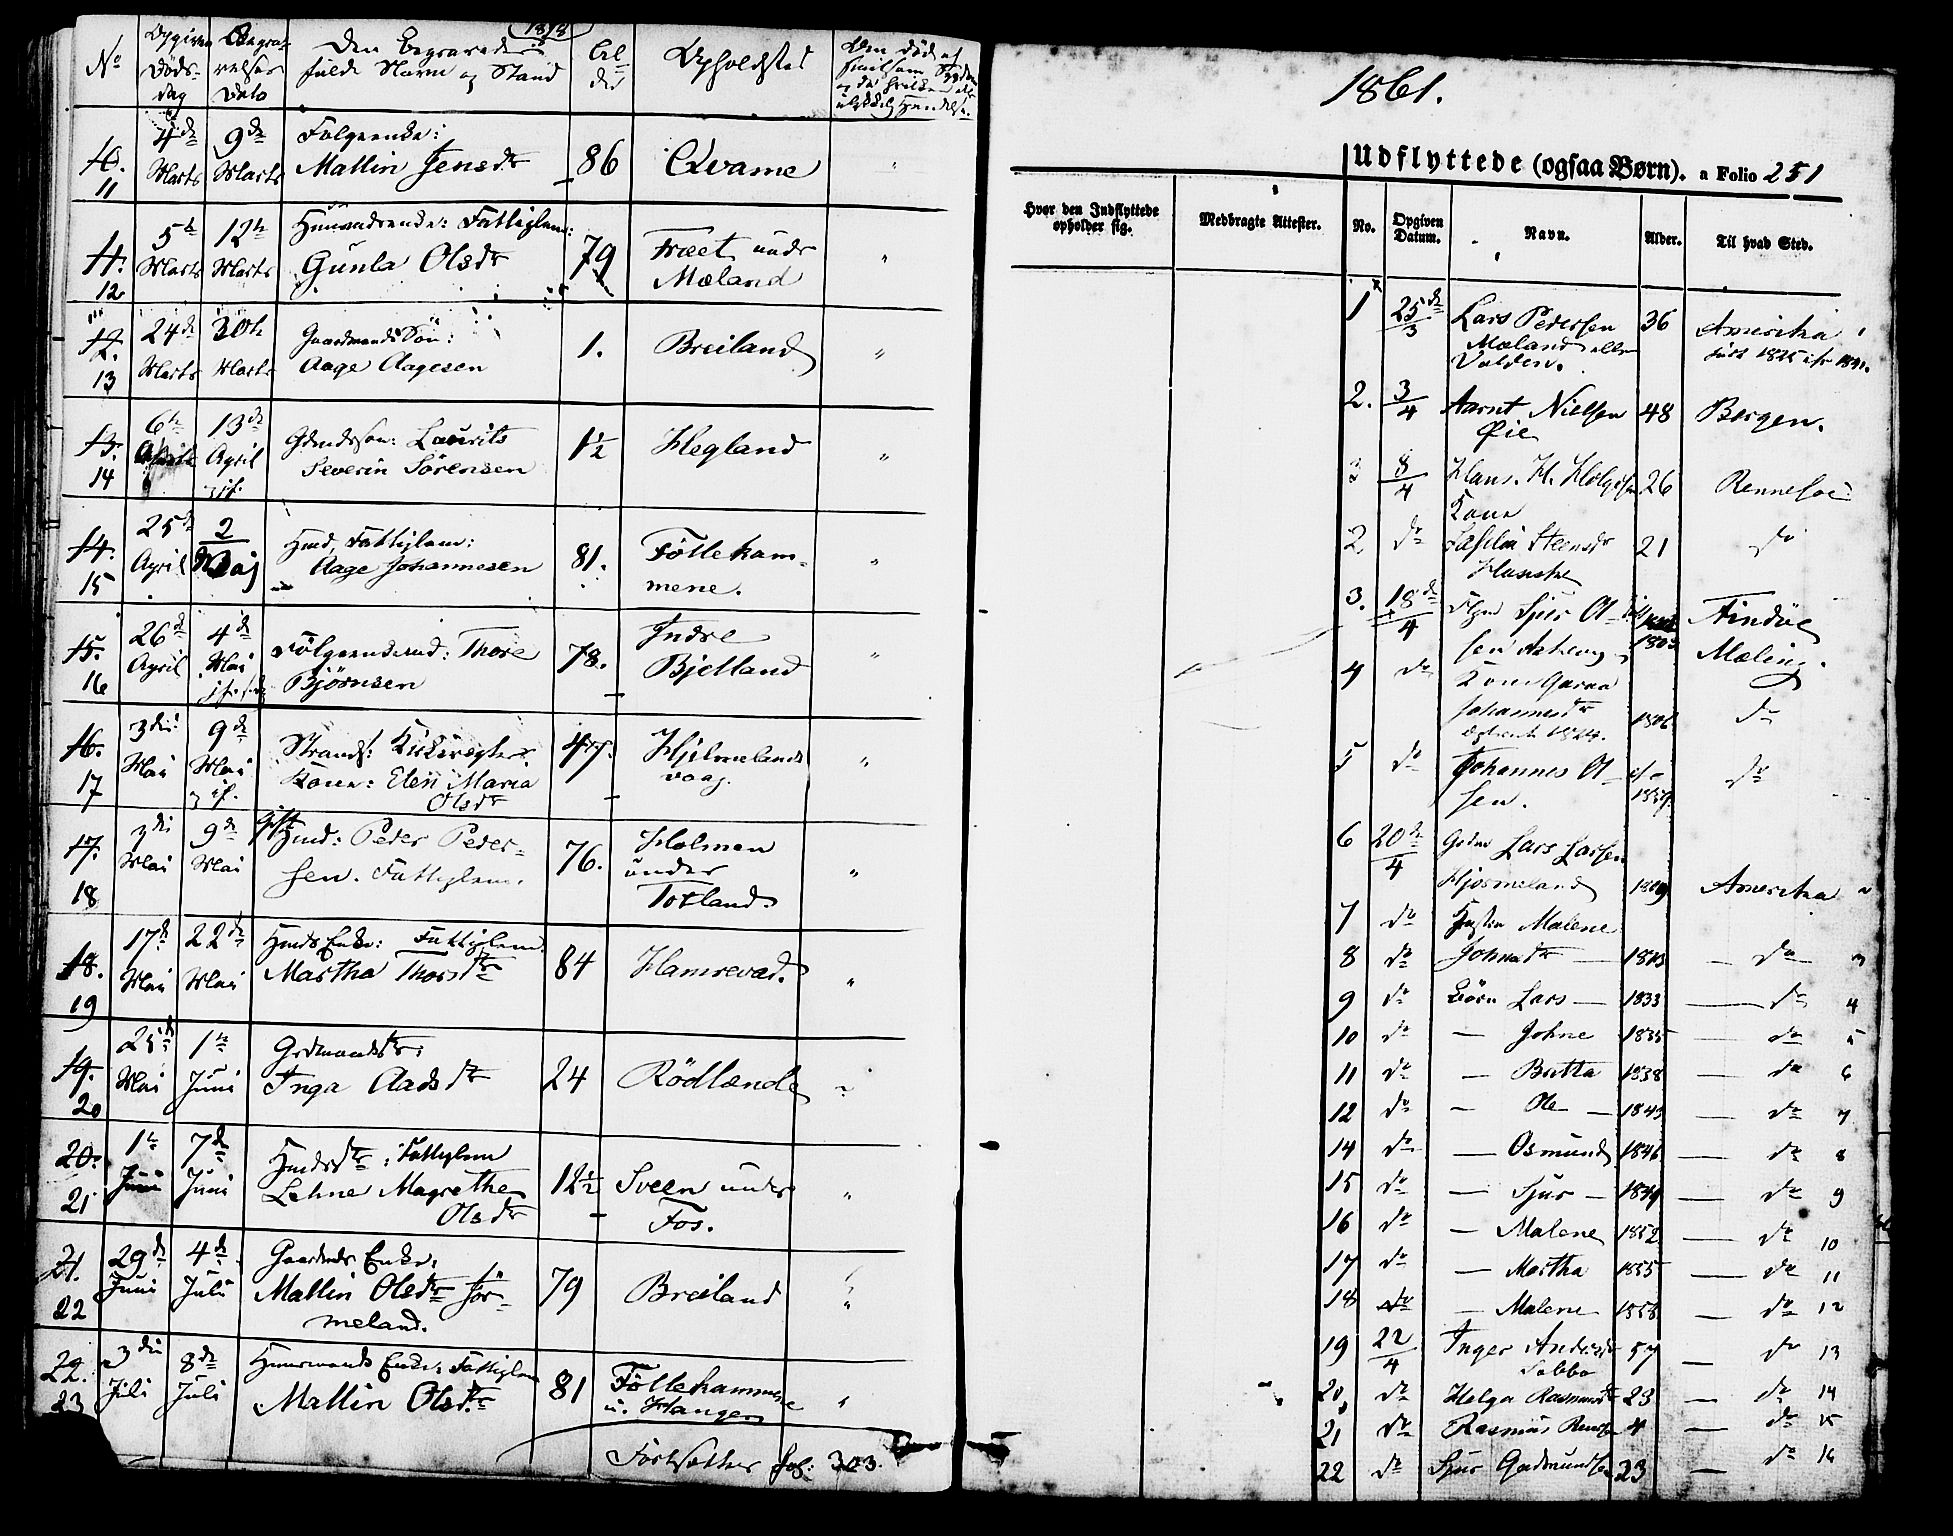 1878
No
Opgiven
Døds-
dag
Begra-
velses
Dato
Den Begravedes
fulde Navn og Stand
Al-
der
Opholdsted
10.
11
4de
Marts
9de
Marts
Mallin Jensdtr
86
Qvame
"
11.
12
5te
Marts
12te
Marts
Gunla Olsdtr
79
Træet under
Mæland
"
12.
13
24de
Marts
30te
Marts
Gaardmands Søn:
Aage Aagesen
1.
Breiland
"
13.
14
6te
April
13de
April
Gdmdssøn: Laurits
Severin Sørensen
1½
Hegland
"
14.
15
25de
April
2
Maj
Hmd, Fattiglem:
Aage Johannesen
81.
Föllekam-
mene.
"
15.
16
26de
April
4de
Mai
Thore
Bjørnsen
78.
Indre
Bjelland
"
16.
17
3die
Mai
9de
Mai
Kone: Elen Maria
Olsdtr
47.
Hjelmelands
vaag.
"
17.
18
3die
Mai
9de
Mai
Hmd: Peder Peder-
sen. Fattiglem.
76.
Holmen
under
Totland.
"
18.
19
17de
Mai
22de
Mai
Hmds Enke: Fattiglem.
Martha Thorsdtr
84
Hamrevad.
"
19.
20
25de
Mai
1te
Juni
Gdmandsdtr:
Inga Aadsdtr
24
Rödlænde
"
20.
21
1te
Juni
7de
Juni
Hmdsdtr: Fattiglem
Lehne Magrethe
Olsdtr
12½
Sveen under
Fos.
"
21.
22
29de
Juni
4de
Juli
Enke:
Mallin Olsdtr Hör-
meland.
79
Breiland
"
22.
23
3die
Juli
8de
Juli
Huusmands Enke: Fattiglem
Mallin Olsdtr
81
Föllekammene
u. Hauger
"
Fortsættes fol: 303.
1861.
Udflyttede (ogsaa Børn). a Folio 251
Hvor den Indflyttede
opholder sig.
Medbragte Attester.
No.
Opgiven
Datum.
Navn.
Alder.
Til hvad Sted.
1
25de/3
Lars Pedersen
Mæland eller
Valden.
36
Amerika 1
2.
3/4
Aarnt Nielsen
Øie
48
Bergen.
3
8/4
Hans. H. Helgesen
26
Rennesøe
Kone
2.
do
Steensdtr
21
do
3.
18de/4
Sjur Ol-
sen
1803
Findöe
Mæling.
4
do
Kone
Johannesdtr
1806
do
5
do
Johannes Ol-
sen.
do
6
20de/4
Gdmd Lars Larsen
Hjormeland
1809
Amerika 2
7
do
Hustru Malene
8
do
Johnsdtr —
1813
— do 3
9
do
Børn Lars —
1833
— do 4
10
do
— Johne
1835
— do 5
11
do
— Britta
1838
— do 6
12
do
— Ole —
1843
— do 7
14
do
— Osmund
1846
— do 8
15
do
— Sjur —
1849
— do 9
16
do
— Malene
1852
— do 10
17
do
— Martha
1855
— do 11
18
do
— Malene
1858
— do 12
19
22/4
Inger Andersdtr
57
— do 13
20,
do
Helga Rasmusdtr
23
— do 14
21
do
Rasmus
4
— do 15
22
do
Sjur Gudmundsen
23
— do 16